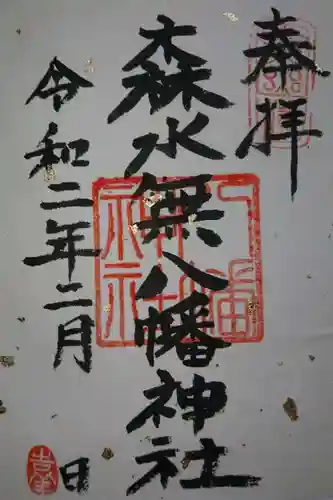 奉拝
森水無八幡神社
令和二年二月
吉日